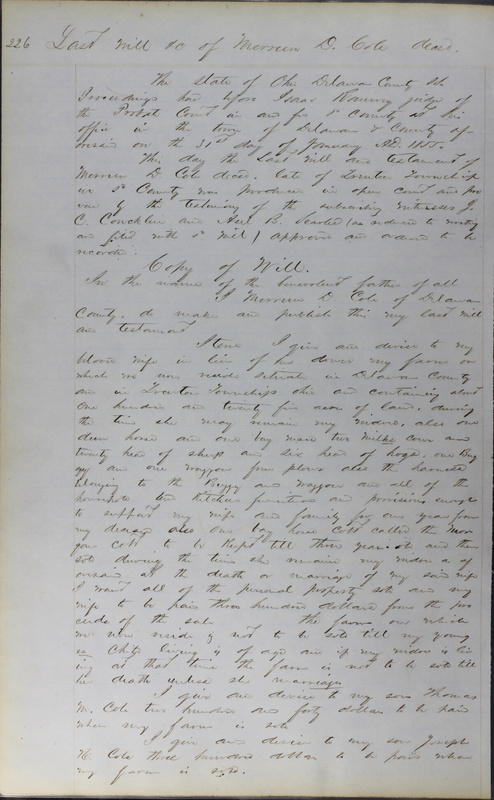 226 Last Will &c of Merreen D. Cole decd.
The State of Ohio Delaware County Ss
Proceedings had before Isaac Ranney judge of
the Probate Court in and for sd County at his
office in the town of Delaware & County af-
orsaid on the 31st day of January AD.
This day the Last Will and testament of
Merreen D Cole decd. late of Township
in sd County was produced in open court and pro
ven by the testimony of the subscribing witnesses J.
C. Concklin and B. (as reduced to writing
and filed with sd Will) approved and ordered to be
recorded.
Copy of Will.
In the name of the benevolent father of all
I Merreen D Cole of Delaware
County, do make and publish this my last will
and testament
Item I give and devise to my
beloved wife in lieu of her dower my farm on
which we now reside situate in Delaware County
and in Township Ohio and containing about
One hundred and twenty five acres of land, during
the time she may remain my widow, also one
horse and one bay mare two milks cows and
twenty head of sheep and six head of hogs, one Bug
gy and one waggon plows also the harness
belonging to the Buggy and waggon and all of the
household and kitchen furniture and provisions enough
to support my wife and family for one year from
my decease also one bay horse colt called the Mor
gan colt to be kept till three years old and then
sold during the time she remains my widow as af
orsaid at the death or marriage of my said wife
I want all of the personal property sold and my
wife to be paid three hundred dollars from the pro
ceeds of the sale the farm on which
we now reside is not to be sold till my young
est Child living is of age and if my widow is liv
ing at that time the farm is not to be sold till
her death unless she marriages
I give and devise to my son Thomas
M. Cole two hundred and forty dollars to be paid
when my farm is sold
I give and devise to my son Joseph
H. Cole three hundred dollars to be paid when
my farm is sold.